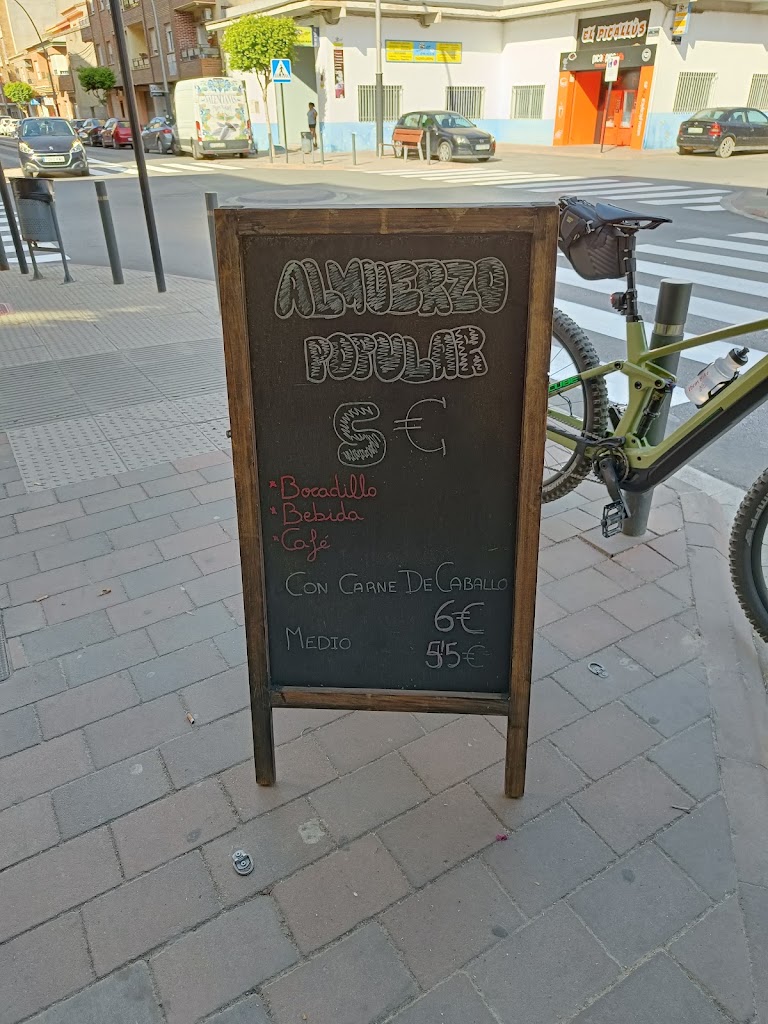 ALMUERZO
POPULAR
5€
*Bocadillo
*Bebida
*Café
CON CARNE DE CABALLO
6€
MEDIO 5'5€